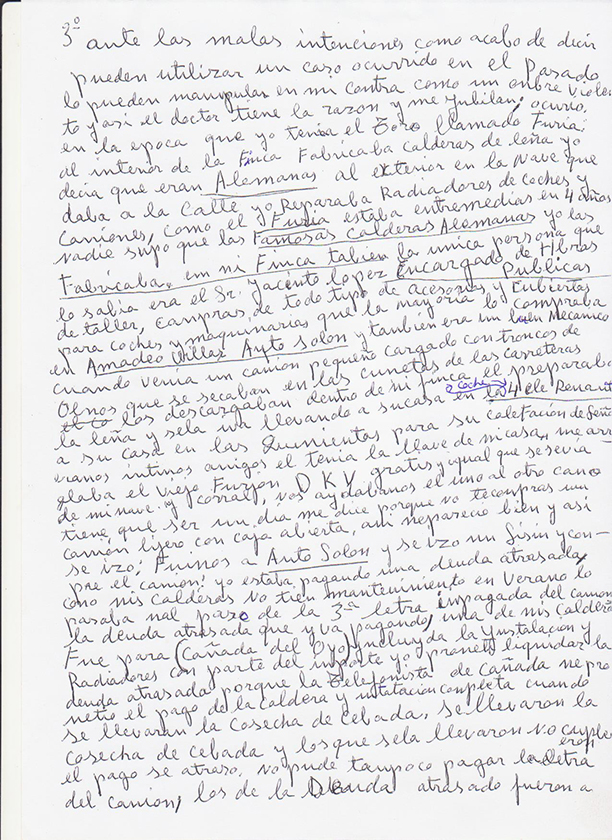 3º ante las malas intenciones como acabo de decir
pueden utilizar un caso ocurrido en el Pasado
lo pueden manipular en mi contra como un onbre violen
to y asi el doctor tiene la razon y me Jubilan; ocurio,
en la epoca que yo tenia el Zoro llamado Furia;
al interior de la Finca Fabricaba calderas de leña yo
decia que eran Alemanas al exterior en la Nave que
daba a la Calle yo Reparaba Radiadores de Coches y
Camiones, como el Furia estaba entremedias en 4 años
Nadie supo que las Famosas Calderas Alemanas yo las
Fabricaba, em mi Finca tabien la unica persona que
lo sabia era el Sr. Yacinto lopez Encargado de Hbras Publicas
de taller, Campras de todo typo de acesorios y Cubiertas
para coches y maquinarias que la mayoria lo compraba
en Amadeo Villar Auto Solon y tambien era un buen Mecanico
cuando venia un camion pequeño cargado con troncos de
Olmos que se secaban en las cunetas de las carreteras
los descargaban dentro de mi finca, el preparaba
la leña y sela iva llevando a sucasa en coche 4 ele Renault
a su casa en las Quinientas para su calefacion de leña
eramos intimos amigos el tenia la llave de micasa, me arr
glaba el viejo Furgon DKV gratis y igual que se servia
de mi nave y corral, nos aydabamos el uno al otro cano
tiene que ser un dia me dice porque no tecompras un
camion lijero con caja abierta, ami neparecio bien y asi
se izo; Fuinos a Auto Solon y se izo un Sisin y con-
pre el camion: yo estaba pagando una deuda atrasada,
cono mis calderas no tien mantenimiento en Verano lo
pasaba nal paso de la 3ª letra inpagada del camion
la deuda atrasada que yva pagando, una de mis caldera
Fue para (Cañada del Oyo) incluyda la Ynstalacion y
Radiadores con parte del inporte yo prometi liquidar la
deuda atrasada porque la Telefonista de Cañada ne pro
netio el pago de la caldera y instalacion conpleta cuando
se llevaran la Cosecha de Cebada, se llevaron la
cosecha de cebada y losque sela llevaron No cunplieron
el pago se atraso, No pude tampoco pagar la letra
del camion, los de la Deuda atrasado fueron a